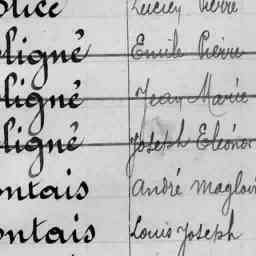 Lucien Pierre
ligné Emile Pierre
ligné Jean Marie
ligné Joseph Eléonor
ontais André Magloi
ontais Louis Joseph